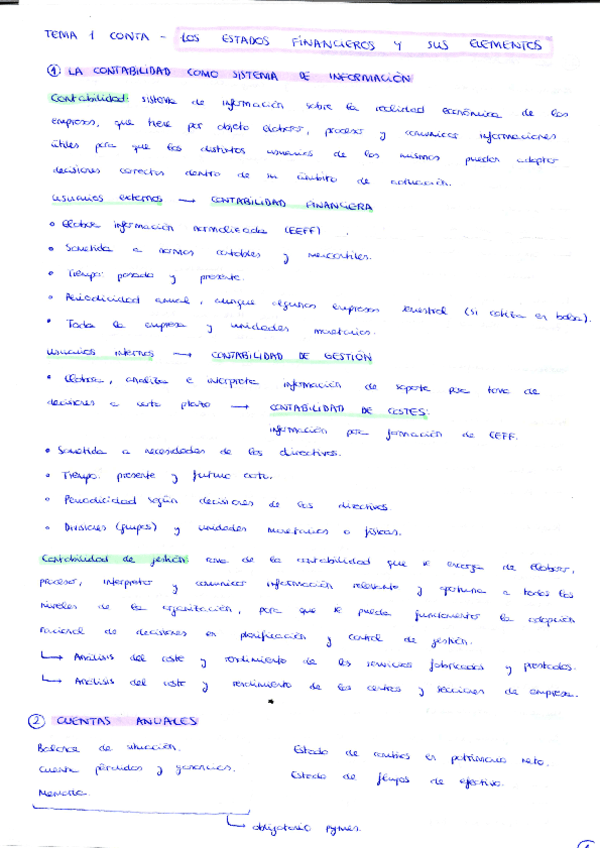 TEMA 1 CONTA - LOS ESTADOS FINANCIEROS Y SUS ELEMENTOS
① LA CONTABILIDAD COMO SISTEMA DE INFORMACIÓN
Contabilidad: sistema de información sobre la realidad económica de las
empresas, que tiene por objeto elaborar, procesar y comunicar informaciones
útiles para que los distintos usuarios de las mismas puedan adoptar
decisiones correctas dentro de su ámbito de actuación.
Usuarios externos → CONTABILIDAD FINANCIERA
• Elabora información normalizada (EEFF).
• Sometida a normas contables y mercantiles.
• Tiempo: pasado y presente.
• Periodicidad anual, aunque algunas empresas semestral (si cotiza en bolsa).
• Toda la empresa y unidades monetarias.
Usuarios internos → CONTABILIDAD DE GESTIÓN
• Elabora, analiza e interpreta información de soporte para toma de
decisiones a corto plazo → CONTABILIDAD DE COSTES:
información para formación de EEFF.
• Sometida a necesidades de los directivos.
• Tiempo: presente y futuro corto.
• Periodicidad según decisiones de los directivos.
• Divisiones (grupos) y unidades monetarias o físicas.
Contabilidad de gestión: rama de la contabilidad que se encarga de elaborar,
procesar, interpretar y comunicar información relevante y oportuna a todos los
niveles de la organización, para que se pueda fundamentar la adopción
racional de decisiones en planificación y control de gestión.
↳ Análisis del coste y rendimiento de los servicios fabricados y prestados.
↳ Análisis del coste y rendimiento de los centros y secciones de empresa.
② CUENTAS ANUALES
Balance de situación.
Cuenta pérdidas y ganancias.
Memoria.
Estado de cambios en patrimonio neto.
Estado de flujos de efectivo.
↳ obligatorio Pymes.
1